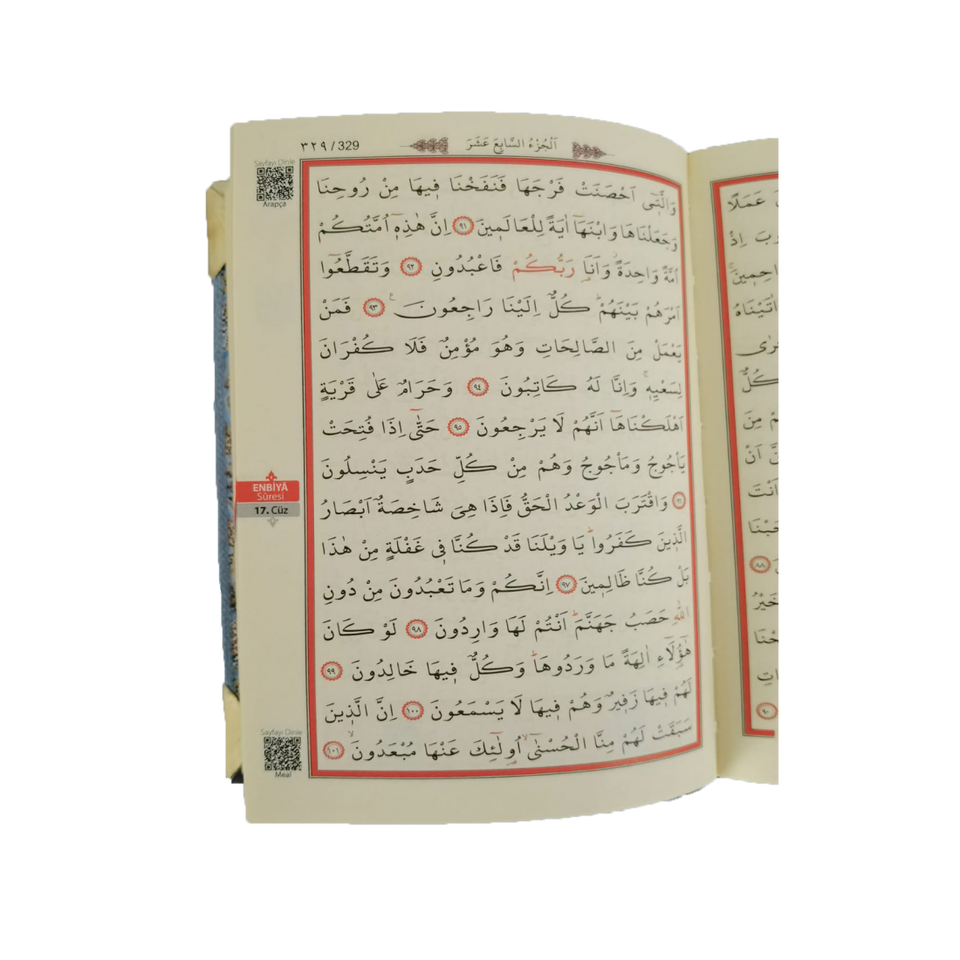 ٣٢٩ / 329
اَلْجُزْءُ السَّابِعَ عَشَرَ
Sayfayı Dinle
Arapça
وَالَّتٖٓي اَحْصَنَتْ فَرْجَهَا فَنَفَخْنَا فٖيهَا مِنْ رُوحِنَا
وَجَعَلْنَاهَا وَابْنَهَٓا اٰيَةً لِلْعَالَمٖينَ ﴿٩١﴾ اِنَّ هٰذِهٖٓ اُمَّتُكُمْ
اُمَّةً وَاحِدَةًۘ وَاَنَا۬ رَبُّكُمْ فَاعْبُدُونِ ﴿٩٢﴾ وَتَقَطَّعُٓوا
اَمْرَهُمْ بَيْنَهُمْۜ كُلٌّ اِلَيْنَا رَاجِعُونَ۟ ﴿٩٣﴾ فَمَنْ
يَعْمَلْ مِنَ الصَّالِحَاتِ وَهُوَ مُؤْمِنٌ فَلَا كُفْرَانَ
لِسَعْيِهٖۚ وَاِنَّا لَهُ كَاتِبُونَ ﴿٩٤﴾ وَحَرَامٌ عَلٰى قَرْيَةٍ
اَهْلَكْنَاهَٓا اَنَّهُمْ لَا يَرْجِعُونَ ﴿٩٥﴾ حَتّٰٓى اِذَا فُتِحَتْ
يَأْجُوجُ وَمَأْجُوجُ وَهُمْ مِنْ كُلِّ حَدَبٍ يَنْسِلُونَ
﴿٩٦﴾ وَاقْتَرَبَ الْوَعْدُ الْحَقُّ فَاِذَا هِيَ شَاخِصَةٌ اَبْصَارُ
الَّذٖينَ كَفَرُواۜ يَا وَيْلَنَا قَدْ كُنَّا فٖي غَفْلَةٍ مِنْ هٰذَا
بَلْ كُنَّا ظَالِمٖينَ ﴿٩٧﴾ اِنَّكُمْ وَمَا تَعْبُدُونَ مِنْ دُونِ
اللّٰهِ حَصَبُ جَهَنَّمَۜ اَنْتُمْ لَهَا وَارِدُونَ ﴿٩٨﴾ لَوْ كَانَ
هٰٓؤُ۬لَٓاءِ اٰلِهَةً مَا وَرَدُوهَاۜ وَكُلٌّ فٖيهَا خَالِدُونَ ﴿٩٩﴾
لَهُمْ فٖيهَا زَفٖيرٌ وَهُمْ فٖيهَا لَا يَسْمَعُونَ ﴿١٠٠﴾ اِنَّ الَّذٖينَ
سَبَقَتْ لَهُمْ مِنَّا الْحُسْنٰىۙ اُو۬لٰٓئِكَ عَنْهَا مُبْعَدُونَۙ ﴿١٠١﴾
ENBİYÂ
Sûresi
17. Cüz
Sayfayı Dinle
Meal
عَمَلًا
اِذْ
اٰتَيْنَاهُ
كُلٌّ
مِنَ
اَنْ
اَنْتَ
﴿٨٨﴾
خَيْرُ
﴿٩٠﴾